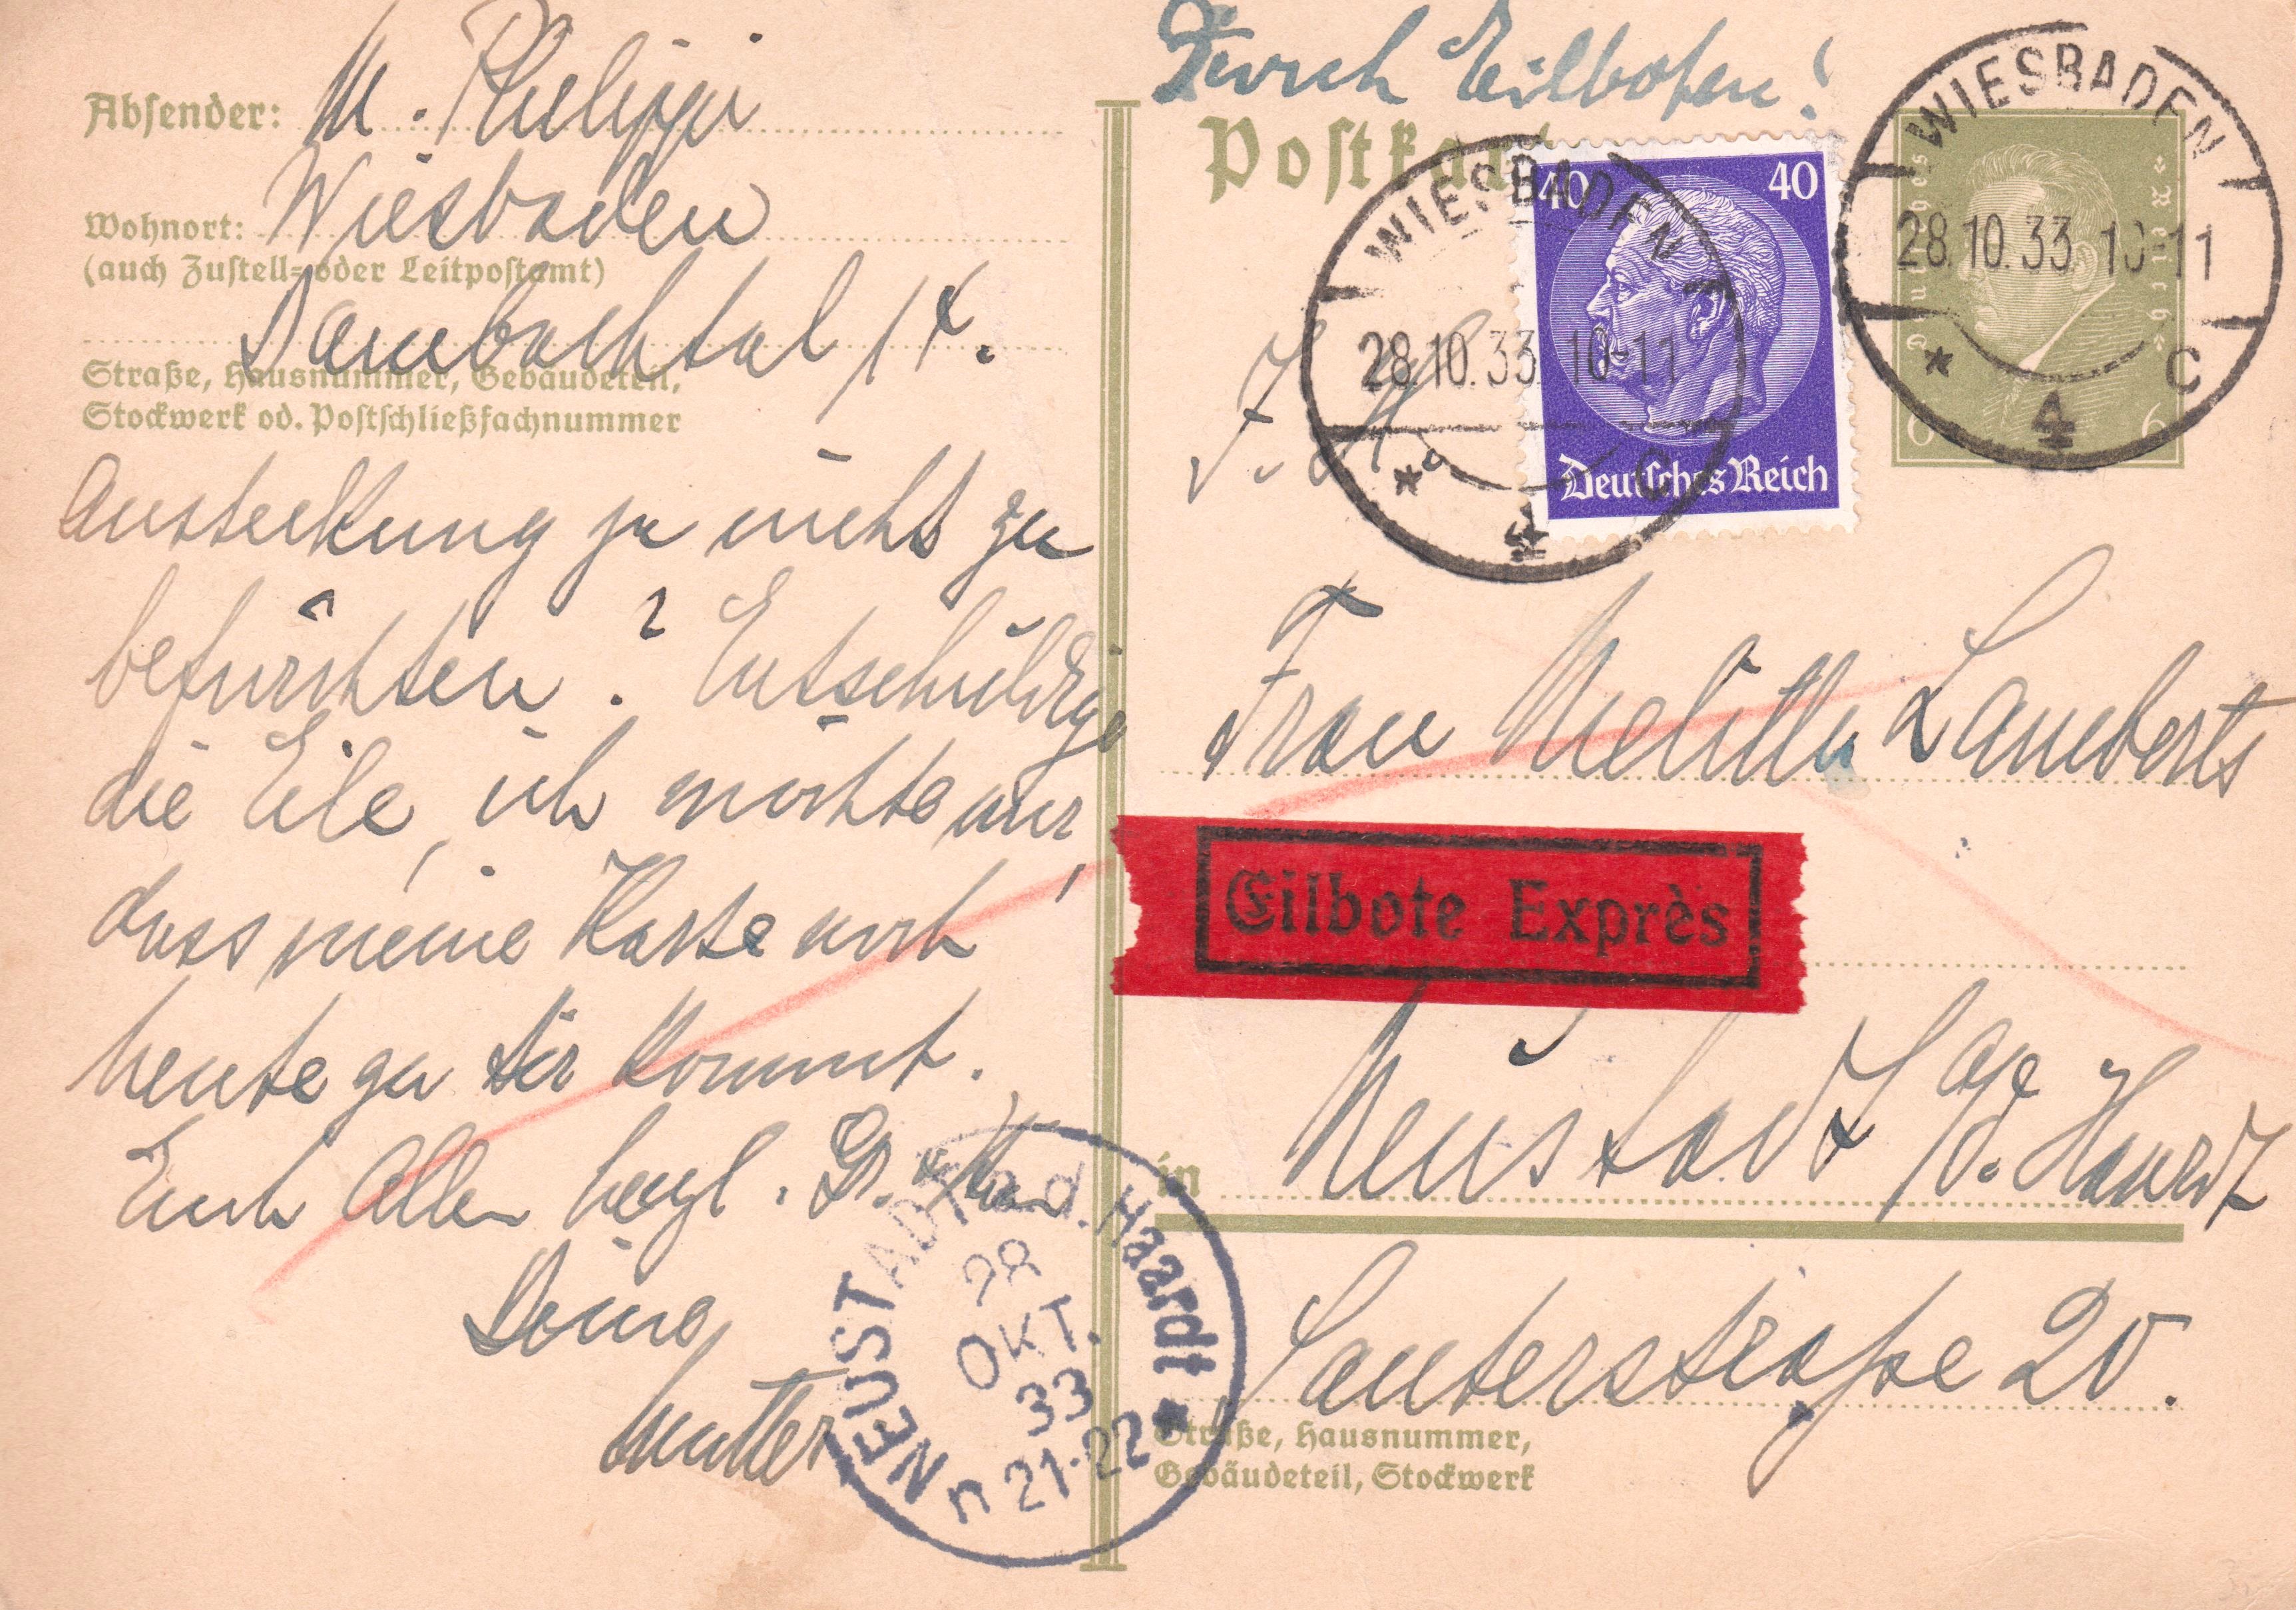 Absender: M. Philippi
Wohnort: Wiesbaden
(auch Zustell- oder Leitpostamt)
Dambachtal 14.
Straße, Hausnummer, Gebäudeteil,
Stockwerk od. Postschließfachnummer
Ansteckung ja nicht zu
befürchten? Entschuldige
die Eile, ich möchte nur,
dass meine Karte noch
heute zu Dir kommt.
Euch Allen herzl. Gr.
Deine
Mutter
NEUSTADT a.d. Haardt
28
OKT.
33
n 21-22
Durch Eilboten!
Postkart
WIESBADEN
28.10.33. 10-11
* 4 C
40 40
Deutsches Reich
WIESBADEN
28.10.33. 10-11
* 4 C
Deutsches Reich
6 6
Frau Melitta Lamberts
Eilbote Exprès
in Neustadt a/d. Haardt
Sauterstraße 20.
Straße, Hausnummer,
Gebäudeteil, Stockwerk